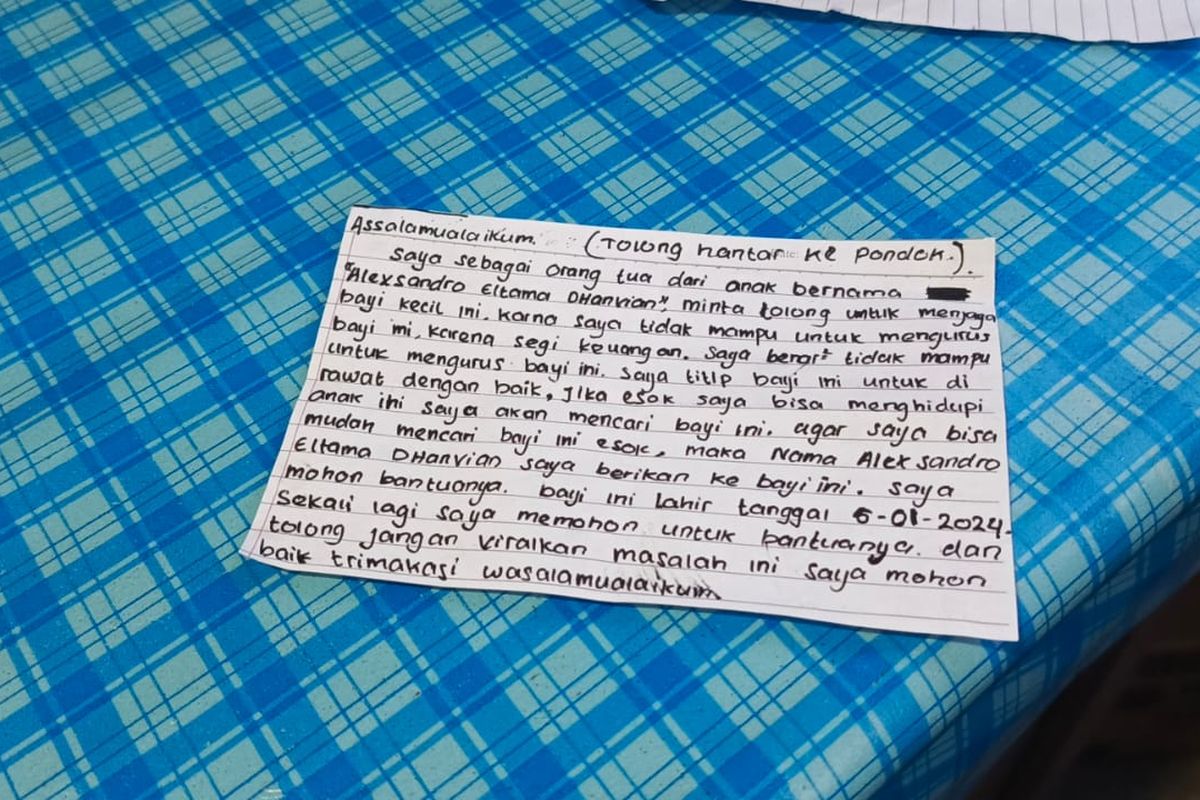 Assalamualaikum. (Tolong hantar ke Pondok.).
Saya sebagai orang tua dari anak bernama
"Alexsandro Eltama DHanvian", minta tolong untuk menjaga
bayi kecil ini. karna saya tidak mampu untuk mengurus
bayi ini, karena segi keuangan. saya berar² tidak mampu
untuk mengurus bayi ini. saya titip bayi ini untuk di
rawat dengan baik, jika esok saya bisa menghidupi
anak ini saya akan mencari bayi ini. agar saya bisa
mudah mencari bayi ini esok, maka Nama Alexsandro
Eltama DHanvian saya berikan ke bayi ini. saya
mohon bantuanya. bayi ini Lahir tanggal 5-01-2024.
Sekali lagi saya memohon untuk bantuanya. dan
tolong jangan viralkan masalah ini saya mohon
baik trimakasi wasalamualaikum